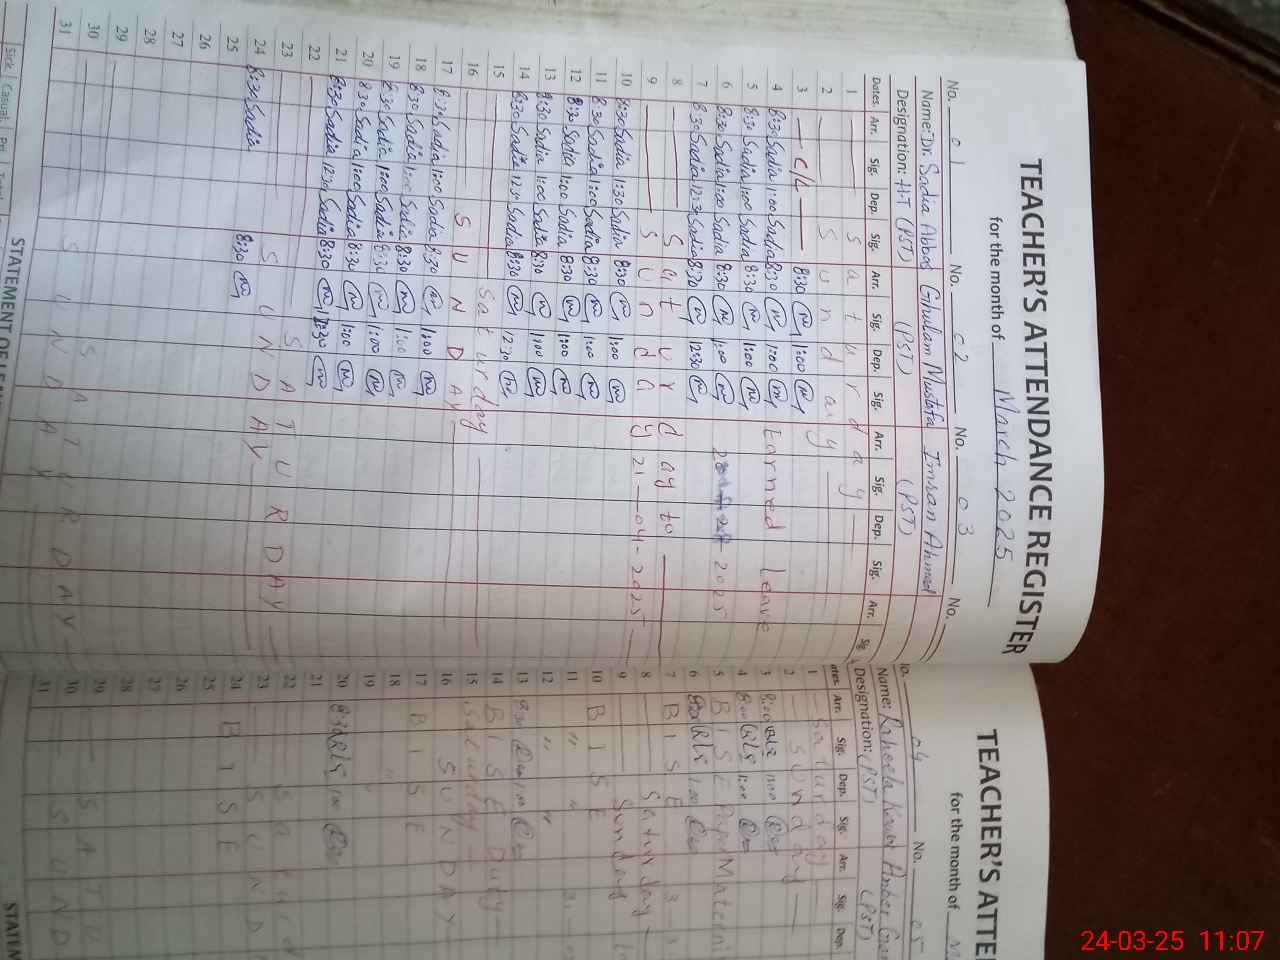 TEACHER'S ATTENDANCE REGISTER
for the month of March 2025
No. 01 No. 02 No. 03 No.
Name: Dr. Sadia Abbas Ghulam Mustafa Imran Ahmed
Designation: H.T (PST) (PST) (PST)
Dates. Arr. Sig. Dep. Sig. Arr. Sig. Dep. Sig. Arr. Sig. Dep. Sig. Arr. Sig.
1 Saturday
2 Sunday
3 C/L 8:30 1:00
4 8:30 Sadia 1:00 Sadia 8:30 1:00 Earned leave
5 8:30 Sadia 1:00 Sadia 8:30 1:00
6 8:30 Sadia 1:00 Sadia 8:30 1:00 2025
7 8:30 Sadia 12:30 Sadia 8:30 12:30
8 Saturday to
9 Sunday 21-04-2025
10 8:30 Sadia 1:30 Sadia 8:30 1:00
11 8:30 Sadia 1:00 Sadia 8:30 1:00
12 8:30 Sadia 1:00 Sadia 8:30 1:00
13 8:30 Sadia 1:00 Sadia 8:30 1:00
14 8:30 Sadia 12:30 Sadia 8:30 12:30
15 Saturday
16 SUNDAY
17 8:30 Sadia 1:00 Sadia 8:30 1:00
18 8:30 Sadia 1:00 Sadia 8:30 1:00
19 8:30 Sadia 1:00 Sadia 8:30 1:00
20 8:30 Sadia 1:00 Sadia 8:30 1:00
21 8:30 Sadia 12:30 Sadia 8:30 12:30
22 SATURDAY
23 SUNDAY
24 8:30 Sadia 8:30
25
26
27
28
29
30 SATURDAY
31 SUNDAY
Sick Casual
STATEMENT OF
TEACHER'S ATTE
for the month of
No. 04 No. 05
Name: Raheela Amber
Designation: (PST) (PST)
Arr. Sig. Dep. Sig. Arr. Sig. Dep.
1 Saturday
2 Sunday
3 8:00 1:00
4 8:00 1:00
5 BISE
6 8:30 1:00
7 BISE
8 Saturday
9 Sunday
10 BISE
11 " "
12 " " "
13 8:30 1:00
14 BISE Duty
15 Saturday
16 SUNDAY
17 BISE
18 "
19
20 8:30 1:00
21
22
23 SUND
24 BISE
25
26
27
28
29
30 SATU
31 SUND
STATEMEN
24-03-25 11:07